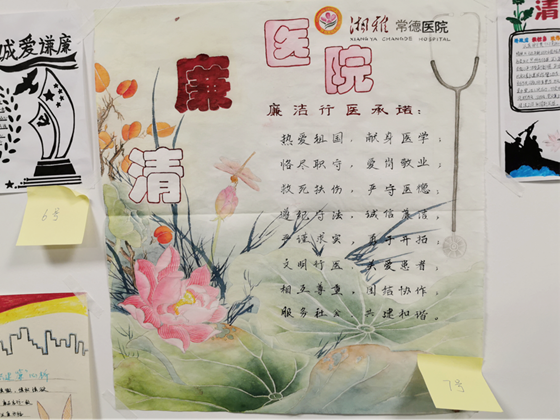 诚爱谦廉
湘雅 常德医院
XIANGYA CHANGDE HOSPITAL
清廉医院
廉洁行医承诺：
热爱祖国，献身医学；
恪尽职守，爱岗敬业；
救死扶伤，严守医德；
遵纪守法，诚信廉洁；
严谨求实，勇于开拓；
文明行医，关爱患者；
相互尊重，团结协作，
服务社会，共建和谐。
6号
7号
清